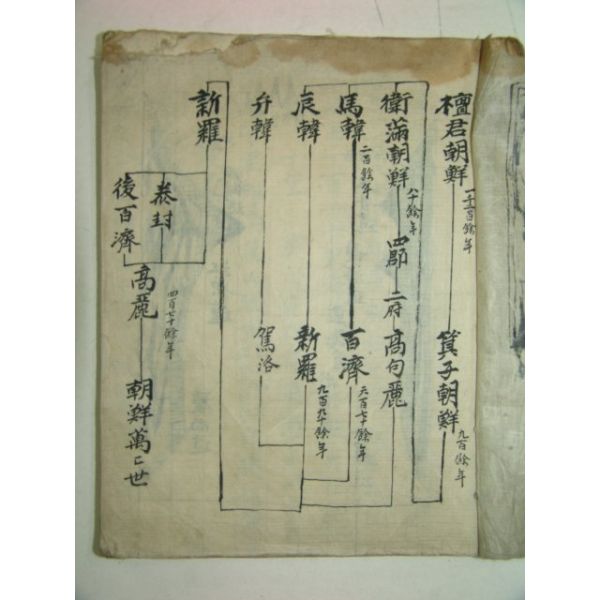 檀君朝鮮
箕子朝鮮
九百餘年
衛滿朝鮮
八十餘年
四郡
二府
高句麗
馬韓
二百餘年
百濟
六百七十餘年
辰韓
新羅
九百九十餘年
弁韓
駕洛
新羅
泰封
後百濟
高麗
四百七十餘年
朝鮮萬〻世